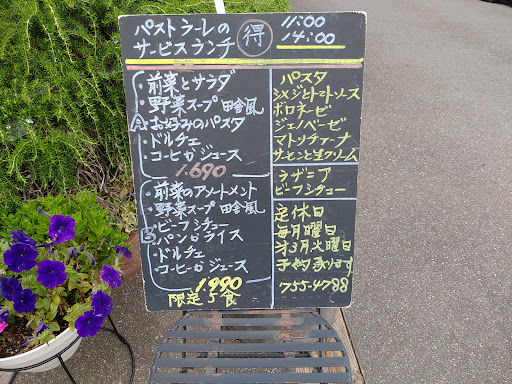 パストラーレの
サービスランチ
得
11:00
14:00
・前菜とサラダ
・野菜スープ 田舎風
A お好みのパスタ
・ドルチェ
・コーヒーorジュース
1.690
・前菜のアソートメント
・野菜スープ 田舎風
・ビーフシチュー
B パンorライス
・ドルチェ
・コーヒーorジュース
1.990
限定5食
パスタ
シメジとトマトソース
ボロネーゼ
ジェノベーゼ
マトリチァーナ
サーモンと生クリーム
ラザニア
ビーフシチュー
定休日
毎月曜日
才3月火曜日
予約承ります
755-4788